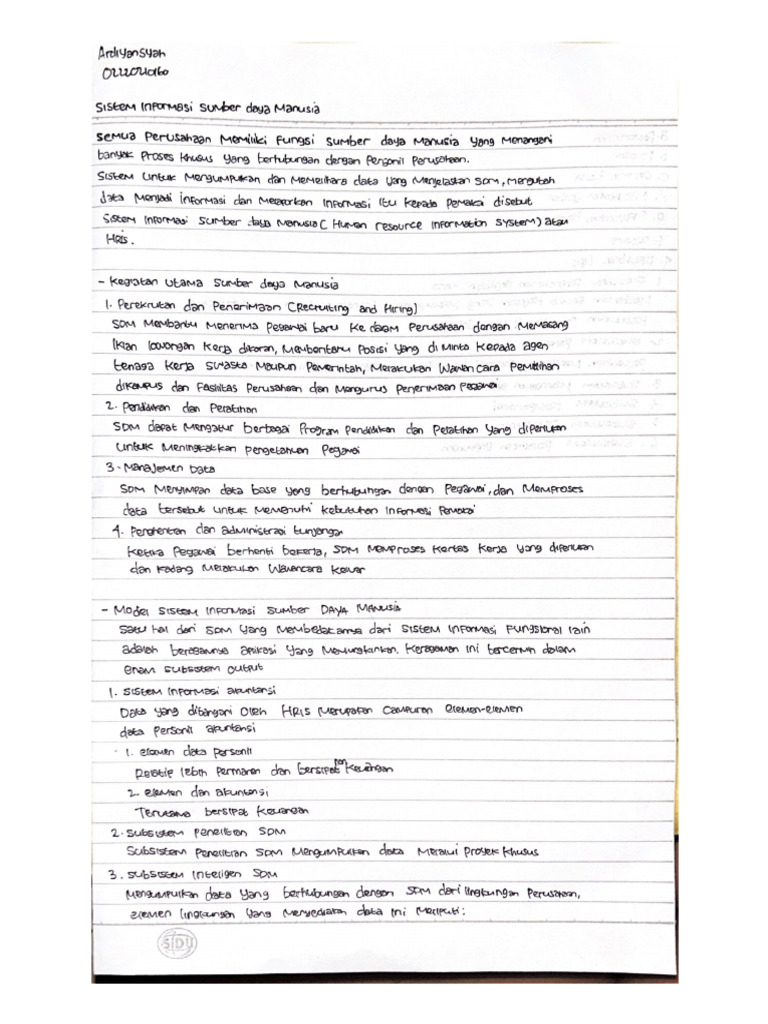 Ardiyansyah
0222011060
Sistem Informasi Sumber daya Manusia
Semua Perusahaan Memiliki Fungsi Sumber daya Manusia yang Menangani
banyak Proses khusus yang berhubungan dengan Personil Perusahaan.
Sistem untuk Mengumpulkan dan Memelihara data yang Menjelaskan SDM, Mengubah
data Menjadi Informasi dan Melaporkan Informasi itu kepada Pemakai disebut
Sistem Informasi Sumber daya Manusia (Human resource Information system) atau
HRIS.
- Kegiatan Utama Sumber daya Manusia
1. Perekrutan dan Penerimaan (Recruiting and Hiring)
SDM Membantu Menerima Pegawai baru ke dalam Perusahaan dengan Memasang
Iklan lowongan kerja dikoran, Memberitahu Posisi yang di Minta kepada agen
tenaga kerja Swasta Maupun Pemerintah, Melakukan Wawancara Pemilihan
dikampus dan Fasilitas Perusahaan dan Mengurus Penerimaan Pegawai
2. Pendidikan dan Pelatihan
SDM dapat Mengatur berbagai Program Pendidikan dan Pelatihan yang diperlukan
untuk Meningkatkan Pengetahuan Pegawai
3. Manajemen Data
SDM Menyimpan data base yang berhubungan dengan Pegawai, dan Memproses
data tersebut untuk Memenuhi kebutuhan Informasi Pemakai
4. Penghentian dan administrasi tunjangan
Ketika Pegawai berhenti bekerja, SDM Memproses kertas kerja yang diperlukan
dan kadang Melakukan Wawancara keluar
- Model Sistem Informasi Sumber DAYA MANUSIA
Satu hal dari SDM yang Membedakannya dari Sistem Informasi Fungsional lain
adalah beragamnya aplikasi yang Memungkinkan. Keragaman Ini tercermin dalam
enam Subsistem output
1. Sistem Informasi akuntansi
Data yang ditangani oleh HRIS Merupakan Campuran elemen-elemen
data Personil akuntansi
1. elemen data Personil
Relatip lebih Permanen dan bersipat non keuangan
2. elemen dan akuntansi
Terutama bersipat keuangan
2. Subsistem Penelitian SDM
Subsistem Penelitian SDM Mengumpulkan data Melalui Proyek khusus
3. Subsistem Inteligen SDM
Mengumpulkan data yang berhubungan dengan SDM dari lingkungan Perusahaan,
elemen lingkungan yang Menyediakan data Ini Meliputi:
SIDU